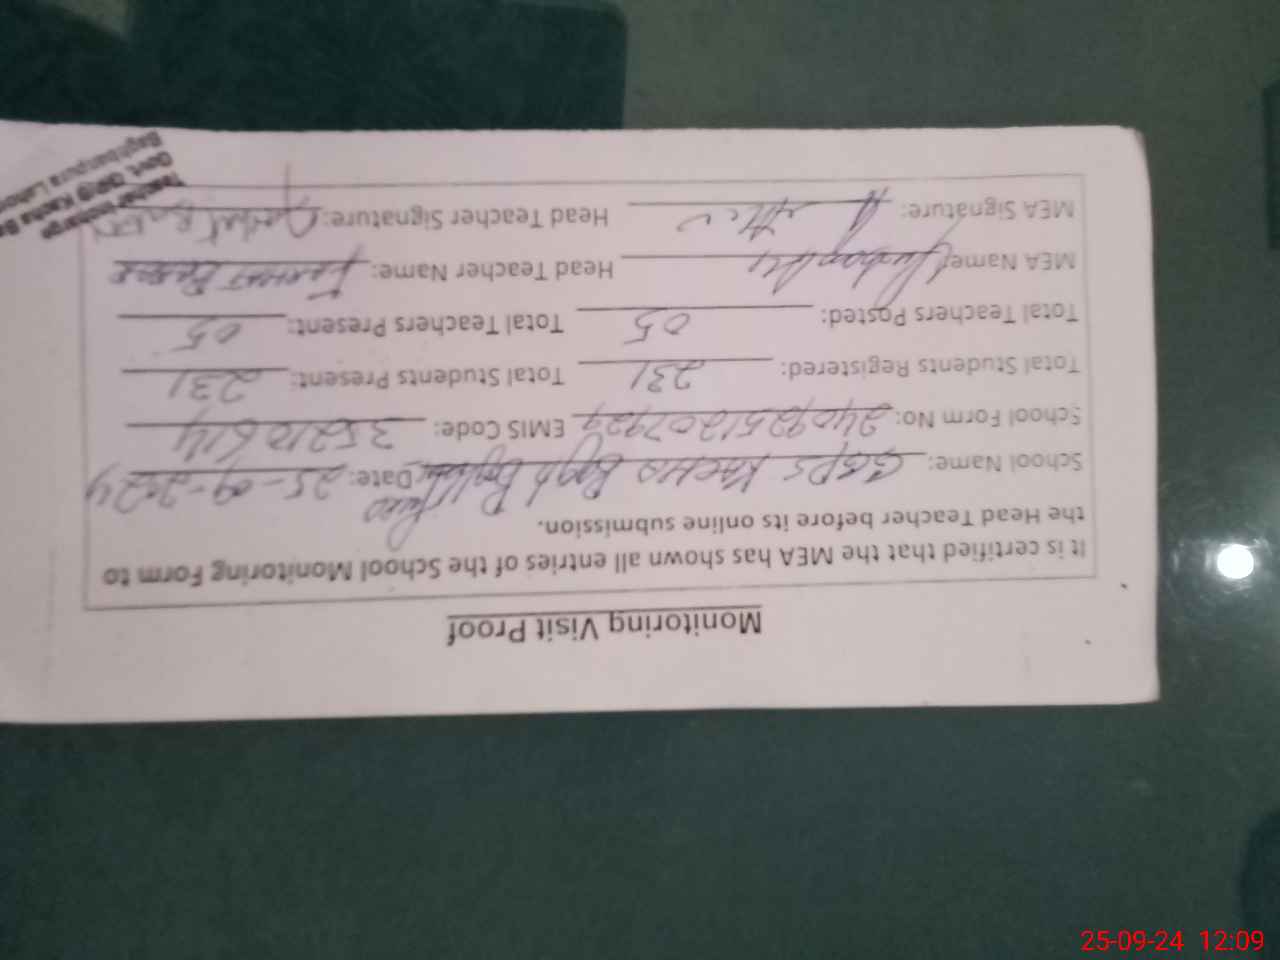 Monitoring Visit Proof
It is certified that the MEA has shown all entries of the School Monitoring Form to
the Head Teacher before its online submission.
School Name: GGPS Kacha Bagh Date: 25-09-2024
School Form No: EMIS Code: 35210614
Total Students Registered: 231 Total Students Present: 231
Total Teachers Posted: 05 Total Teachers Present: 05
MEA Name: Head Teacher Name: Farhat
MEA Signature: Head Teacher Signature:
Teacher Incharge
Govt. Kacha
Baghbanpura Lahore
25-09-24 12:09